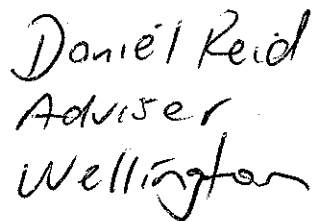 Daniel Reid
Adviser
Wellington